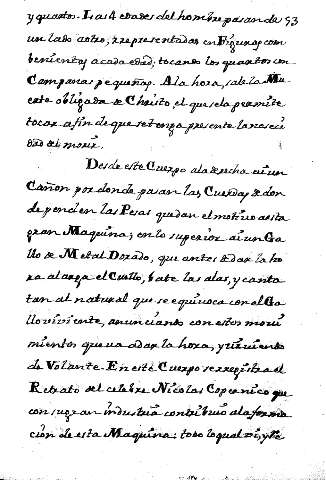 y quarto. Las 4 edades del hombre pasan de 93
un lado aotro, representadas en Figuras com
benientes acada edad, tocando los quartos con
Campanas pequeñas. Ala hora, sale la Mu
erte obligada de Christo, el que sela permite
tocar afin de que se tenga presente la necesi
dad del morir.
Desde este Cuerpo ala derecha ai un
Cañon por donde pasan las Cuerdas de don
de penden las Pesas que dan el motivo aesta
gran Maquina; en lo superior ai un Ga
llo de Metal Dorado, que antes de dar la ho
ra alarga el Cuello, bate las alas, y canta
tan al natural que se equivoca con el Ga
llo viviente, anunciando con estos movi
mientos que va adar la hora, y sirviendo
de Volante. En este Cuerpo se rregistra el
Retrato del celebre Nicolas Copernico que
con su gran industria contribuió ala forma
ción de esta Maquina: todo lo qual